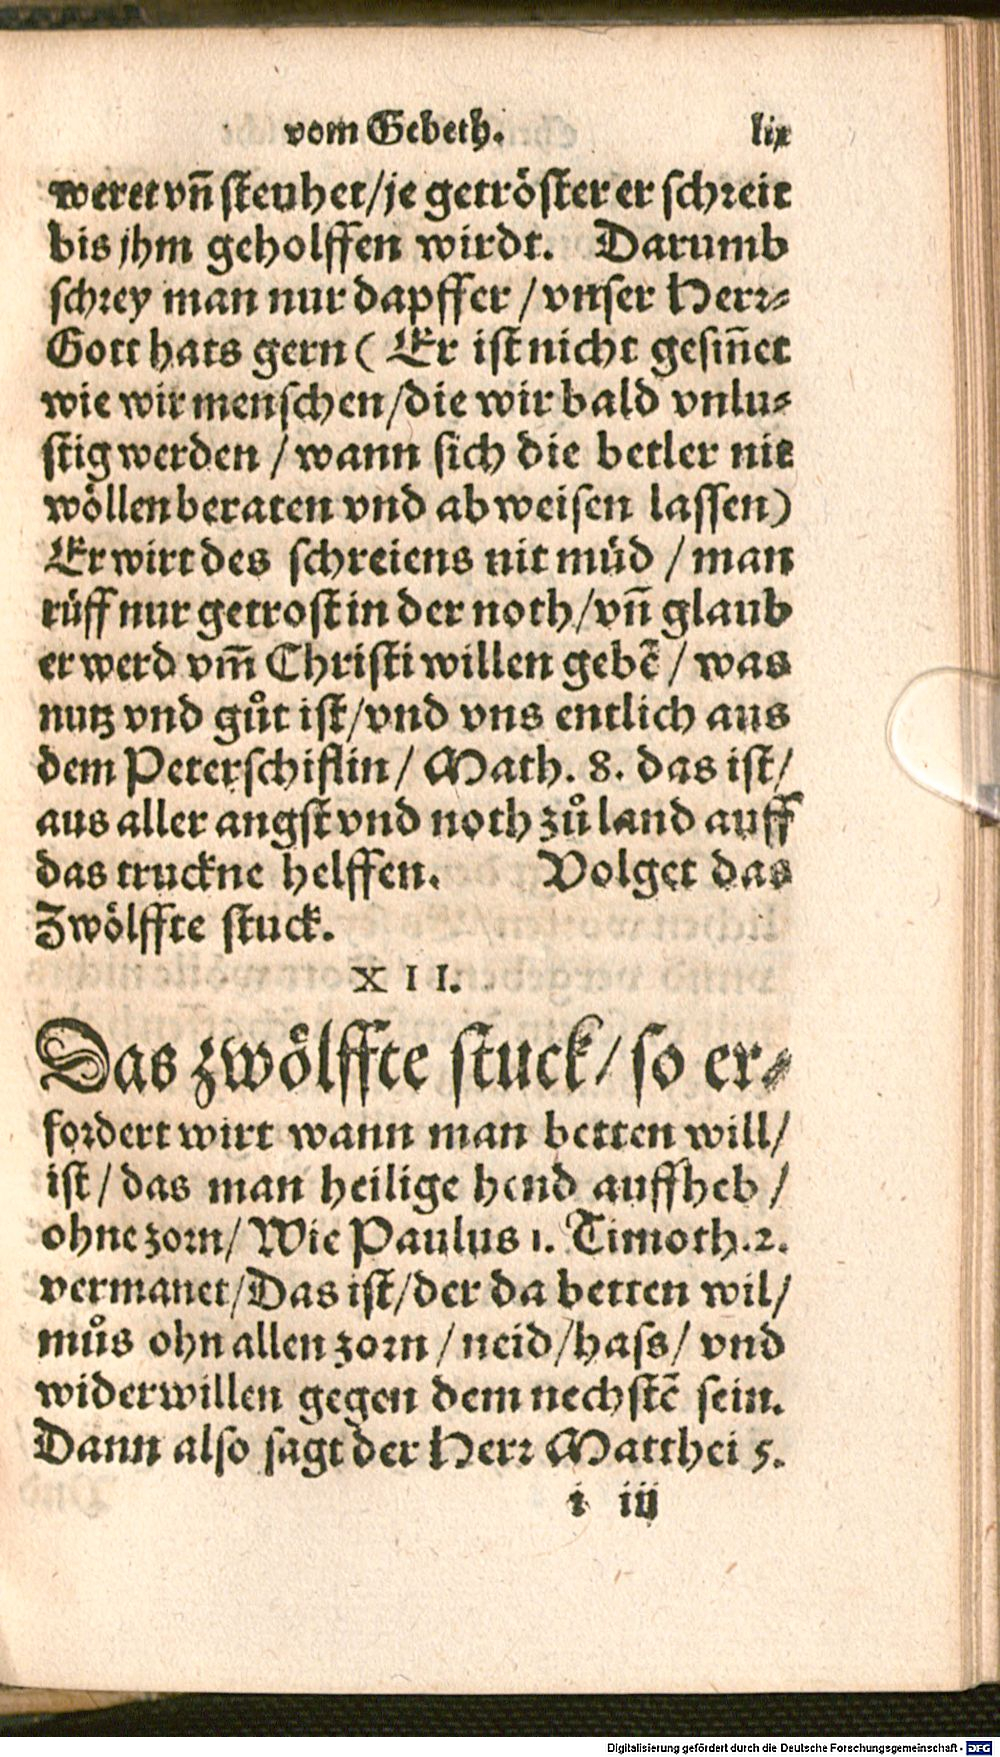 vom Gebeth. lix
weret vñ steuhet/je getröster er schreit
bis jhm geholffen wirdt. Darumb
schrey man nur dapffer / vnser Herr-
Gott hats gern ( Er ist nicht gesiñet
wie wir menschen/die wir bald vnlu-
stig werden / wann sich die betler nit
wöllen beraten vnd abweisen lassen)
Er wirt des schreiens nit müd / man
rüff nur getrost in der noth/vñ glaub
er werd vm̃ Christi willen gebẽ / was
nutz vnd gůt ist/vnd vns entlich aus
dem Peterschiflin / Math. 8. das ist/
aus aller angst vnd noth zů land auff
das truckne helffen. Volget das
Zwölffte stuck.
XII.
Das zwölffte stuck/ so er-
fordert wirt wann man betten will/
ist / das man heilige hend auffheb /
ohne zorn/ Wie Paulus 1. Timoth.2.
vermanet/Das ist/der da betten wil/
můs ohn allen zorn / neid/hass/ vnd
widerwillen gegen dem nechstẽ sein.
Dann also sagt der Herr Matthei 5.
i iij
Digitalisierung gefördert durch die Deutsche Forschungsgemeinschaft - DFG